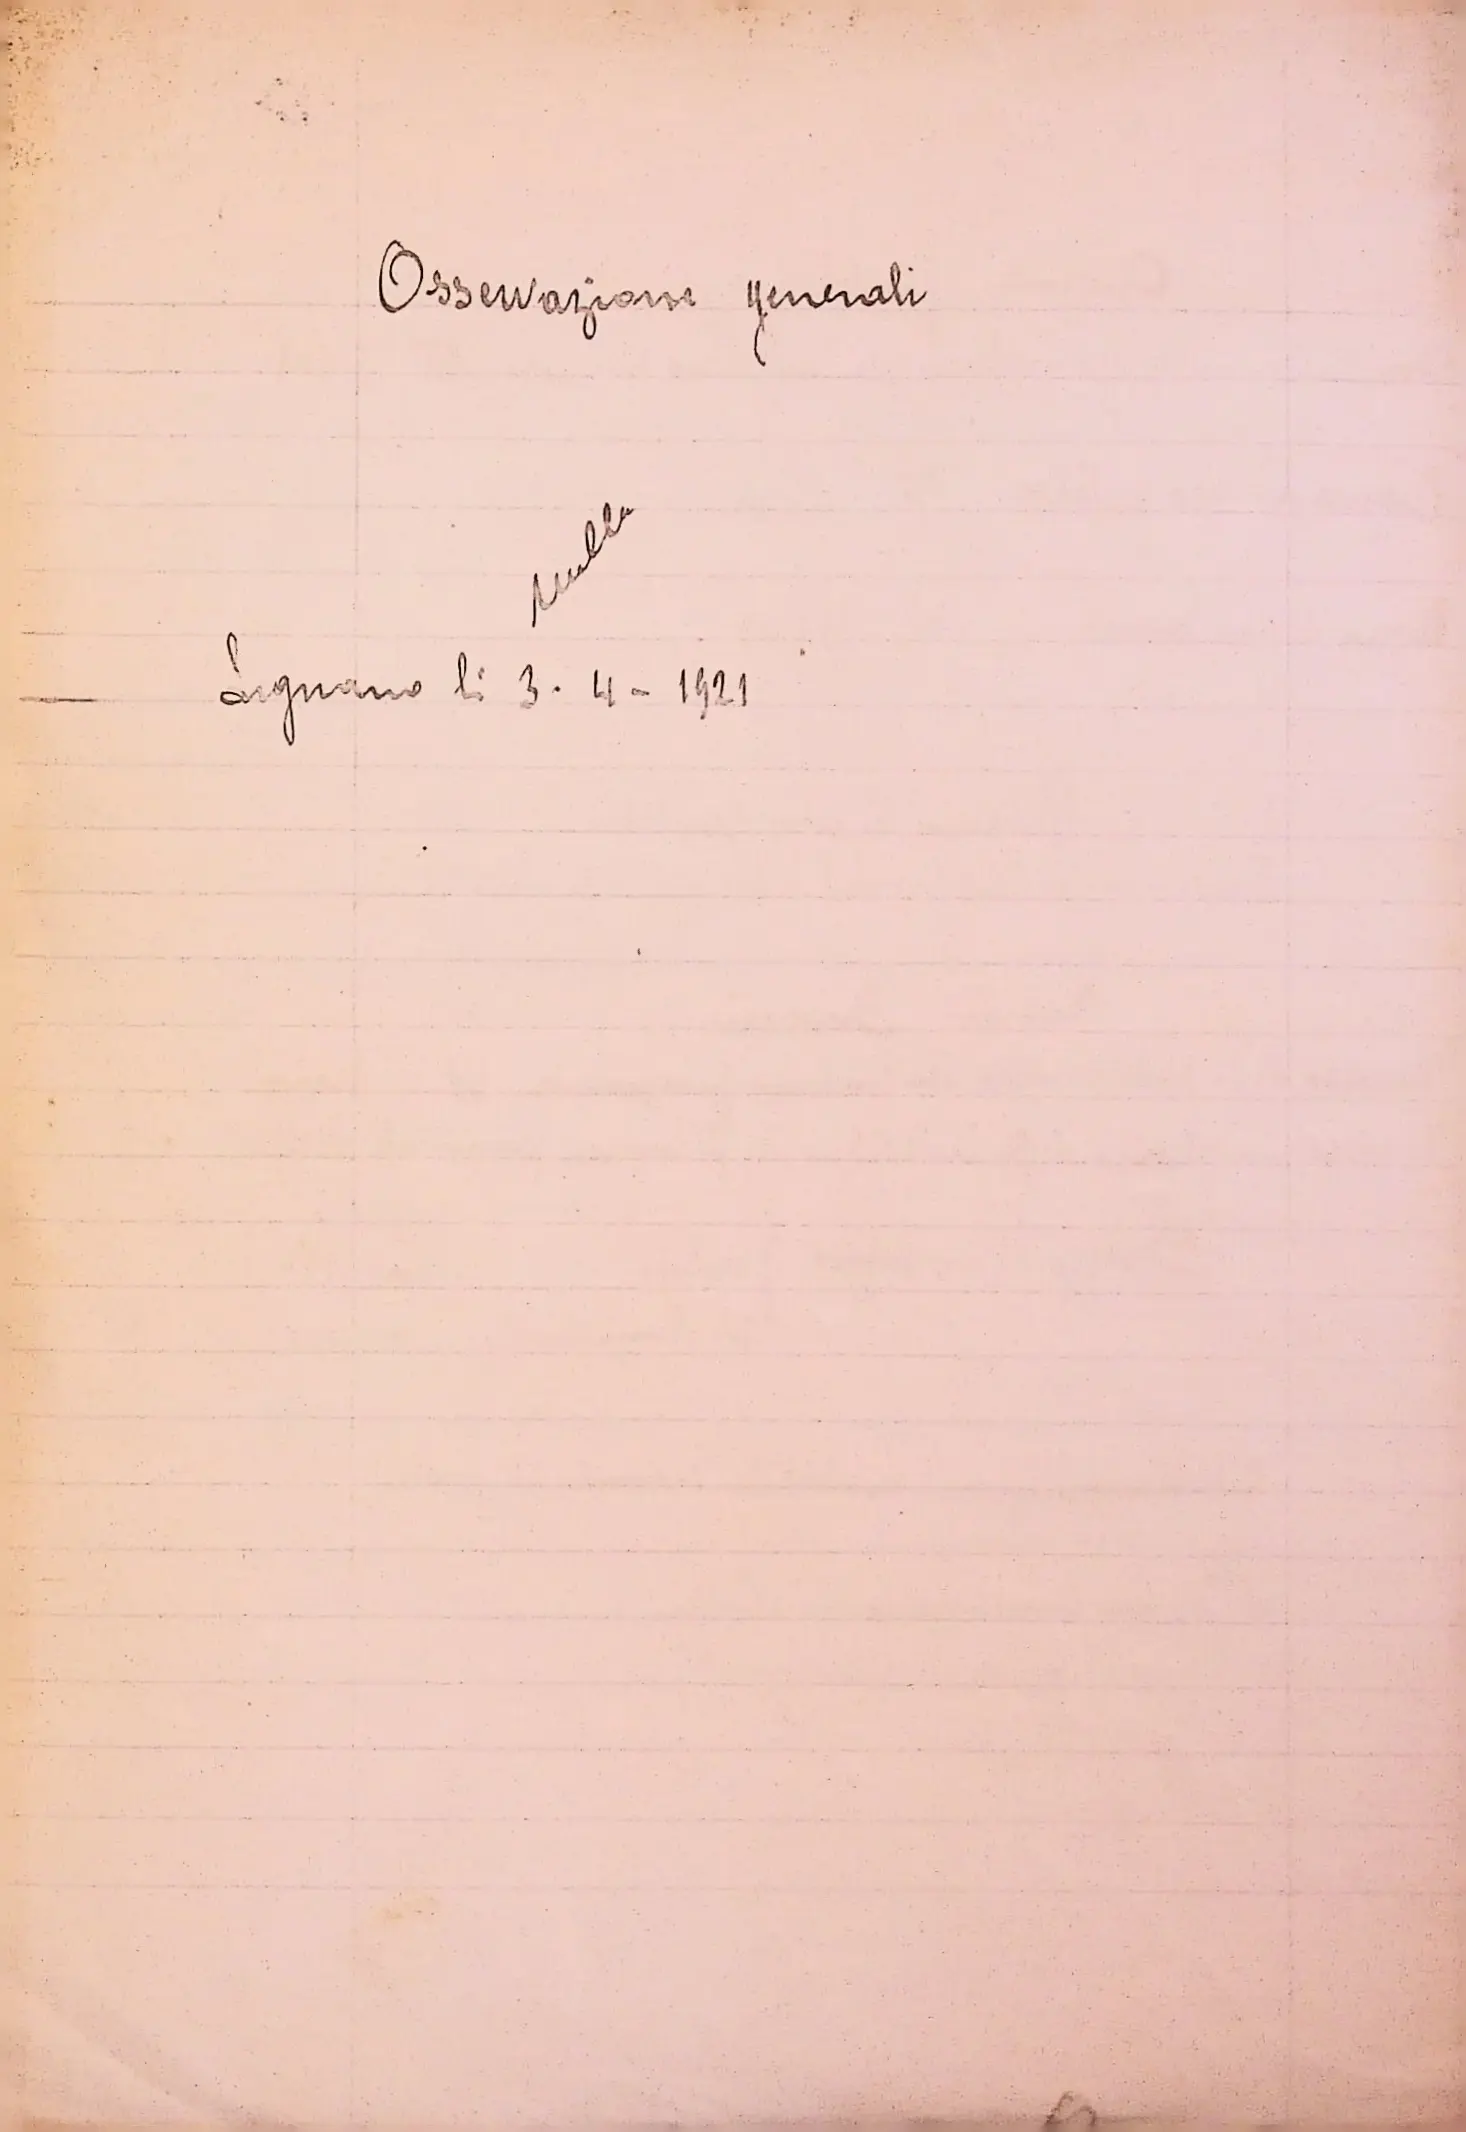 Osservazione generali
nulla
Legnano li 3 - 4 - 1921